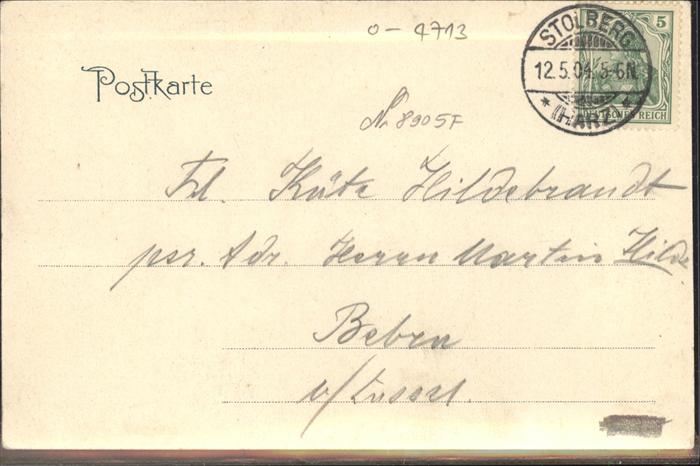 o - 4713
STOLBERG
12.5.04. 5-6N.
* (HARZ) *
5
DEUTSCHES REICH
Postkarte
Nr 8905F
Frl. Käte Hildebrandt
per. Adr. Herrn Martin Hilde
Bebra
b/Cassel.